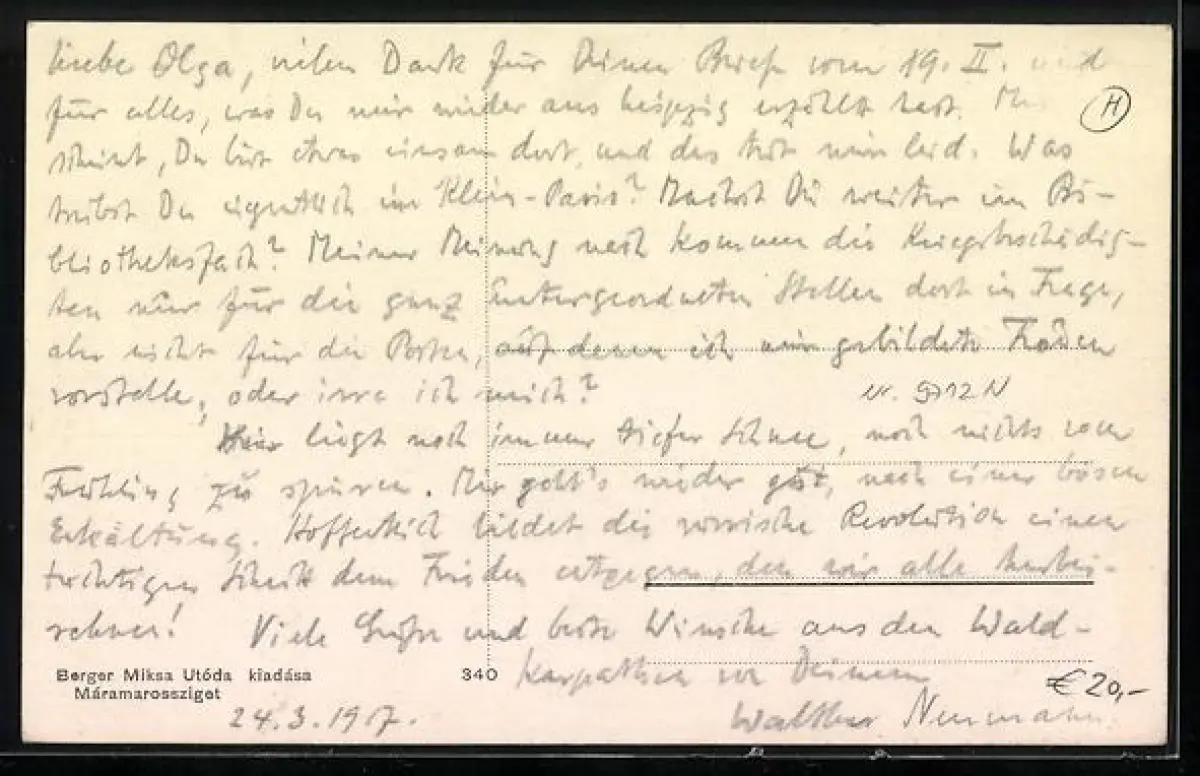 Liebe Olga, vielen Dank für Deinen Brief vom 19. II. und
für alles, was Du mir wieder aus Leipzig erzählt hast.
scheint, Du bist etwas einsam dort, und das tut mir leid. Was
treibst Du eigentlich in Klein-Paris? Machst Du weiter im Bi-
bliotheksfach? Meiner Meinung nach kommen die Kriegsbeschädig-
ten nur für die ganz untergeordneten Stellen dort in Frage,
aber nicht für die Posten, auf denen ich mir gebildete Frauen
vorstelle, oder irre ich mich?
Nr. 9712 N
Hier liegt noch immer tiefer Schnee, noch nichts vom
Frühling zu spüren. Mir geht's wieder gut, nach einer bösen
Erkältung. Hoffentlich bildet die russische Revolution einen
tüchtigen Schritt dem Frieden entgegen, den wir alle herbei-
sehnen! Viele Grüße und beste Wünsche aus den Wald-
karpathen von Deinem
Walther Neumann.
24.3.1917.
Berger Miksa Utóda kiadása
Máramarossziget
340
H
€ 20,-